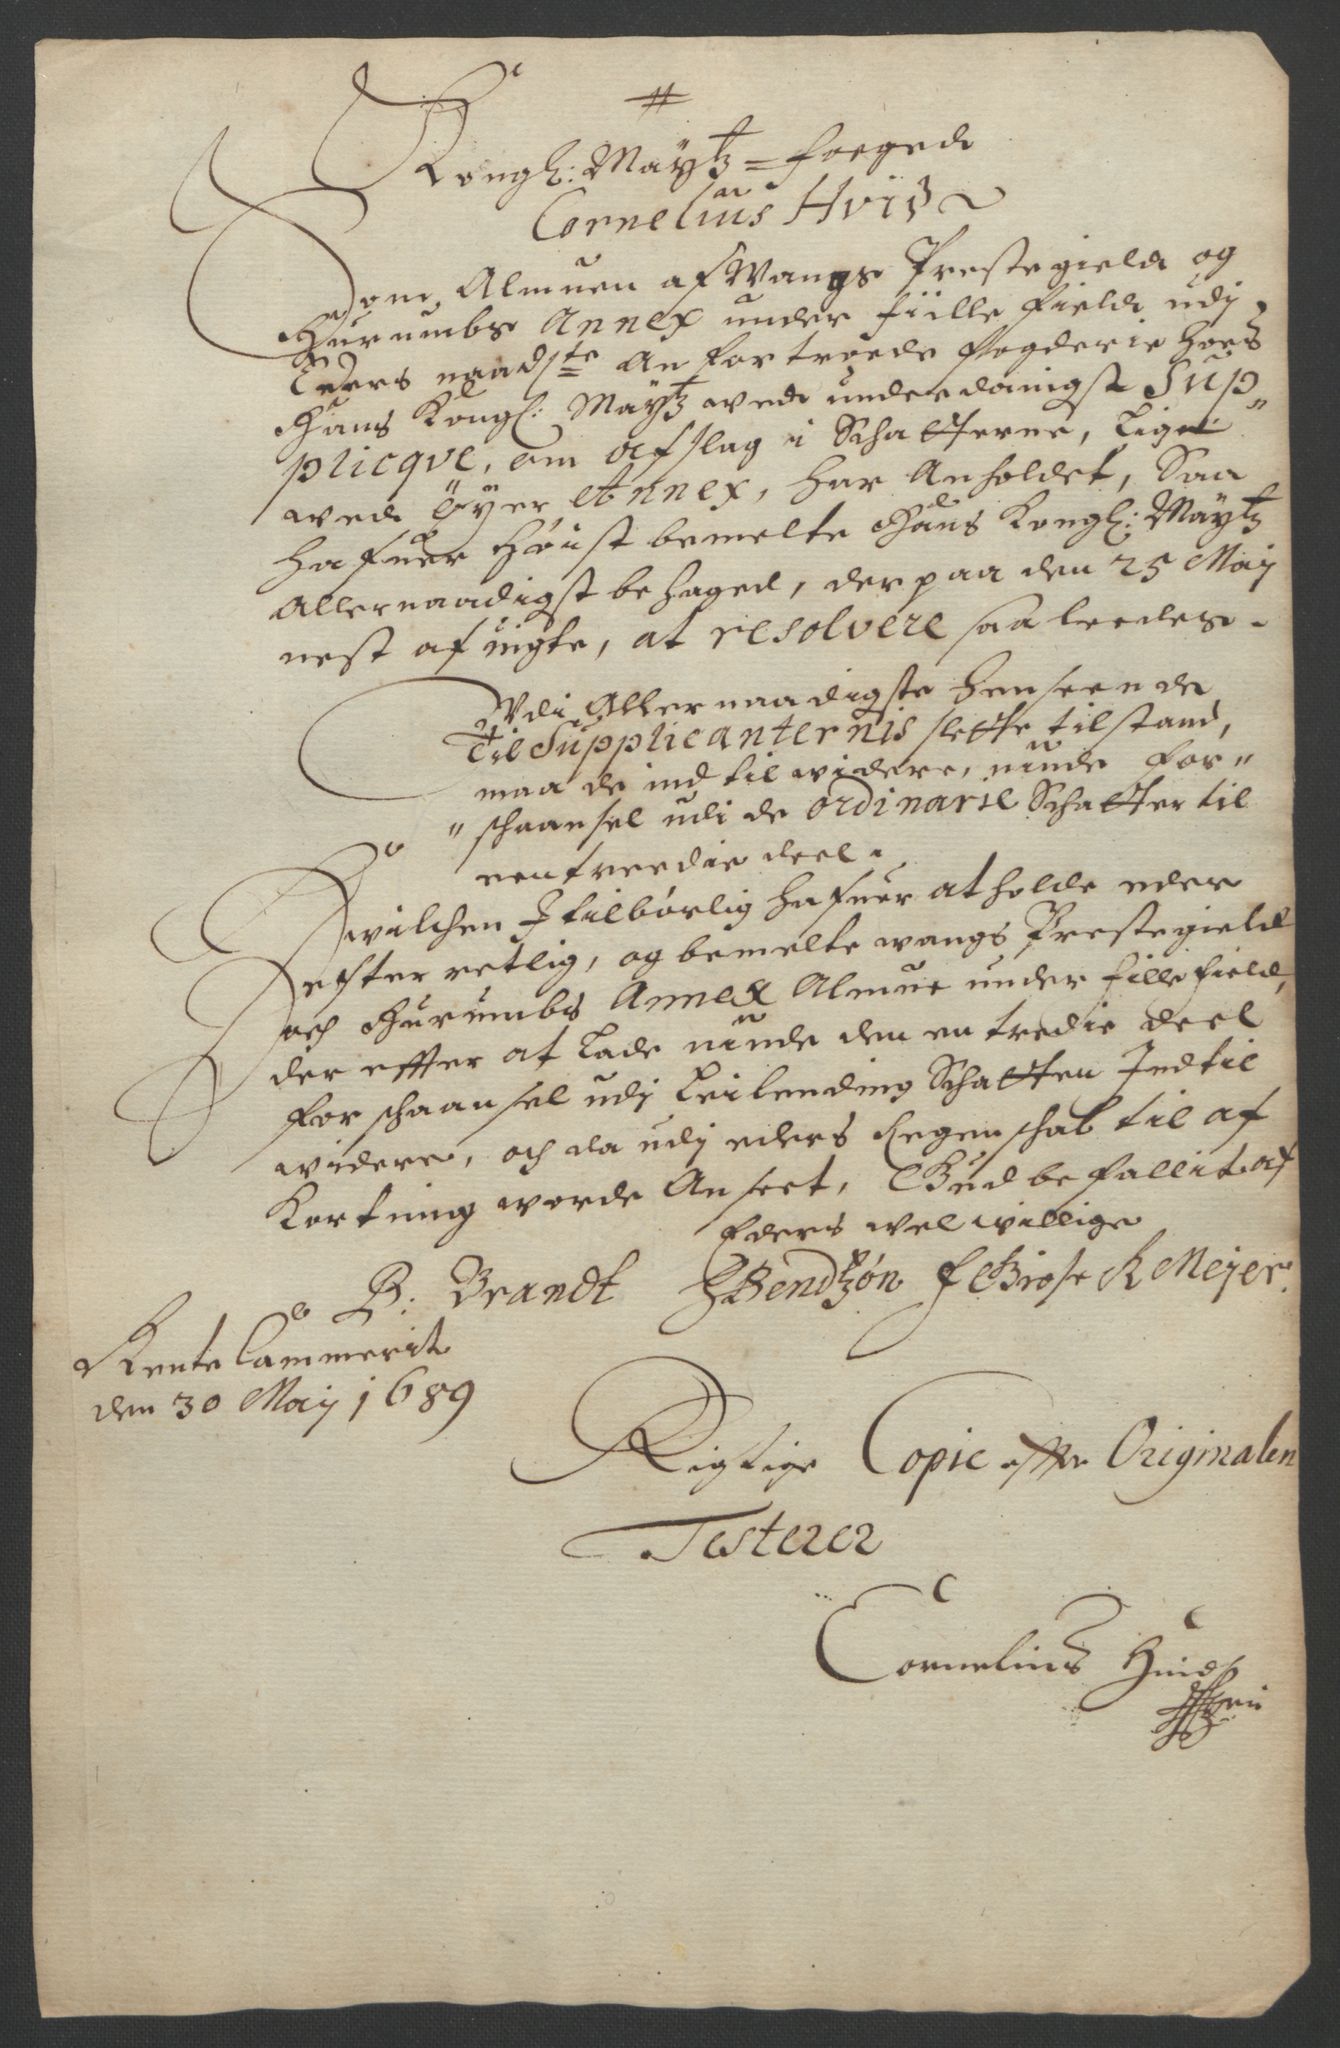 #
Kongl: Maytz = foeged
Cornelius Hvitz
Som Almuen af Wangs Prestegield og
Hurumbs Annex under fiille field udj
Eders naadste Anfortroede fogderie hoes
Hans Kongl: Maytz wed underdanigst Sup„
plicqve, om afslag i Schatterne, Liger
wed Öyer Annex, har Anholdet, Saa
hafuer høist bemelte Hans Kongl: Maytz
Allernaadigst behaged, der paa den 25 Maij
nest afuigte, at resolvere saaleedes.
Vdi Allernaadigste henseende
til Supplicanternis slette tilstand,
maa de ind til widere, niude for„
„schaansel udi de ordinarie Schatter til
een treedie deel.
Hwilchen I tilbørlig hafuer at holde eder
efterretlig, og bemelte wangs Prestegield
och Hurumbs Annex Almue under fillefield,
der effter at Lade niude den en tredie deel
forschaansel udj Leilending Schatten Indtil
widere, och da udj eders Regenschab til af
Kortning worde Anseet, Gud befallit af
Eders welwillige
P: Brandt HBendtzøn Meyer
Rente Cammerit
den 30 Maij 1689
Rigtige Copie effter Originalen
Testerer
Cornelius Huids